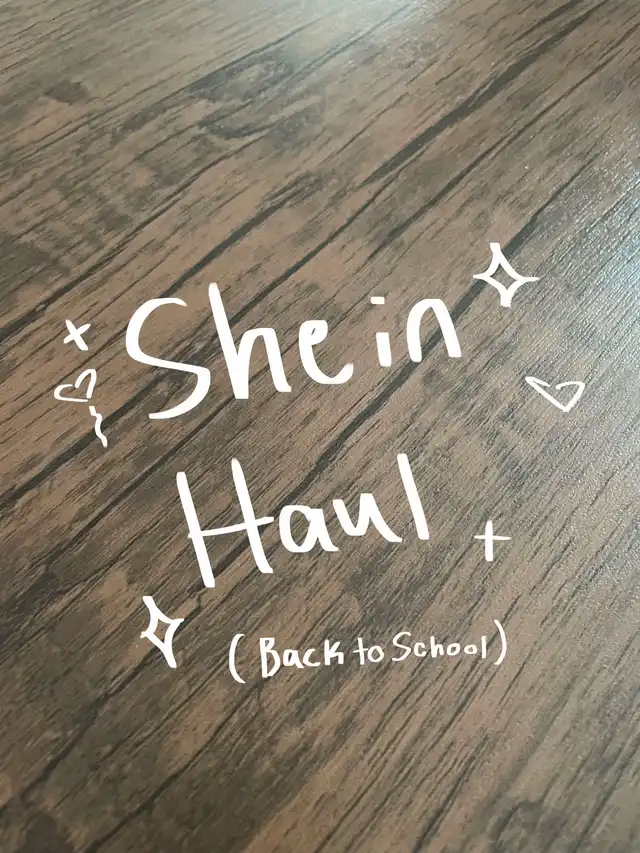 Shein
Haul
(Back to School)